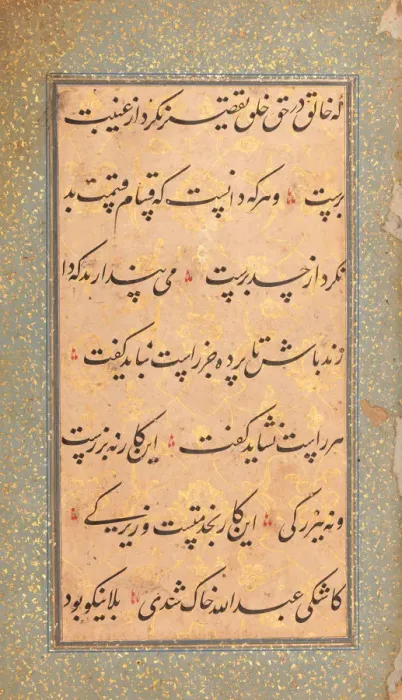 که خالق در حق خلق تقصیر نکرد از غیبت
برست وهرکه دانست که قسام قسمت بد
نکرد از حسد برست می پندار بد که دا
زندباش تا پرده جز راست نباید گفت
هر راست نشاید گفت این کار نه بزرست
ونه بزرگی این کار بخدمتست وزیرکی
کاشکی عبدالله خاک شدی بلا نیکو بود